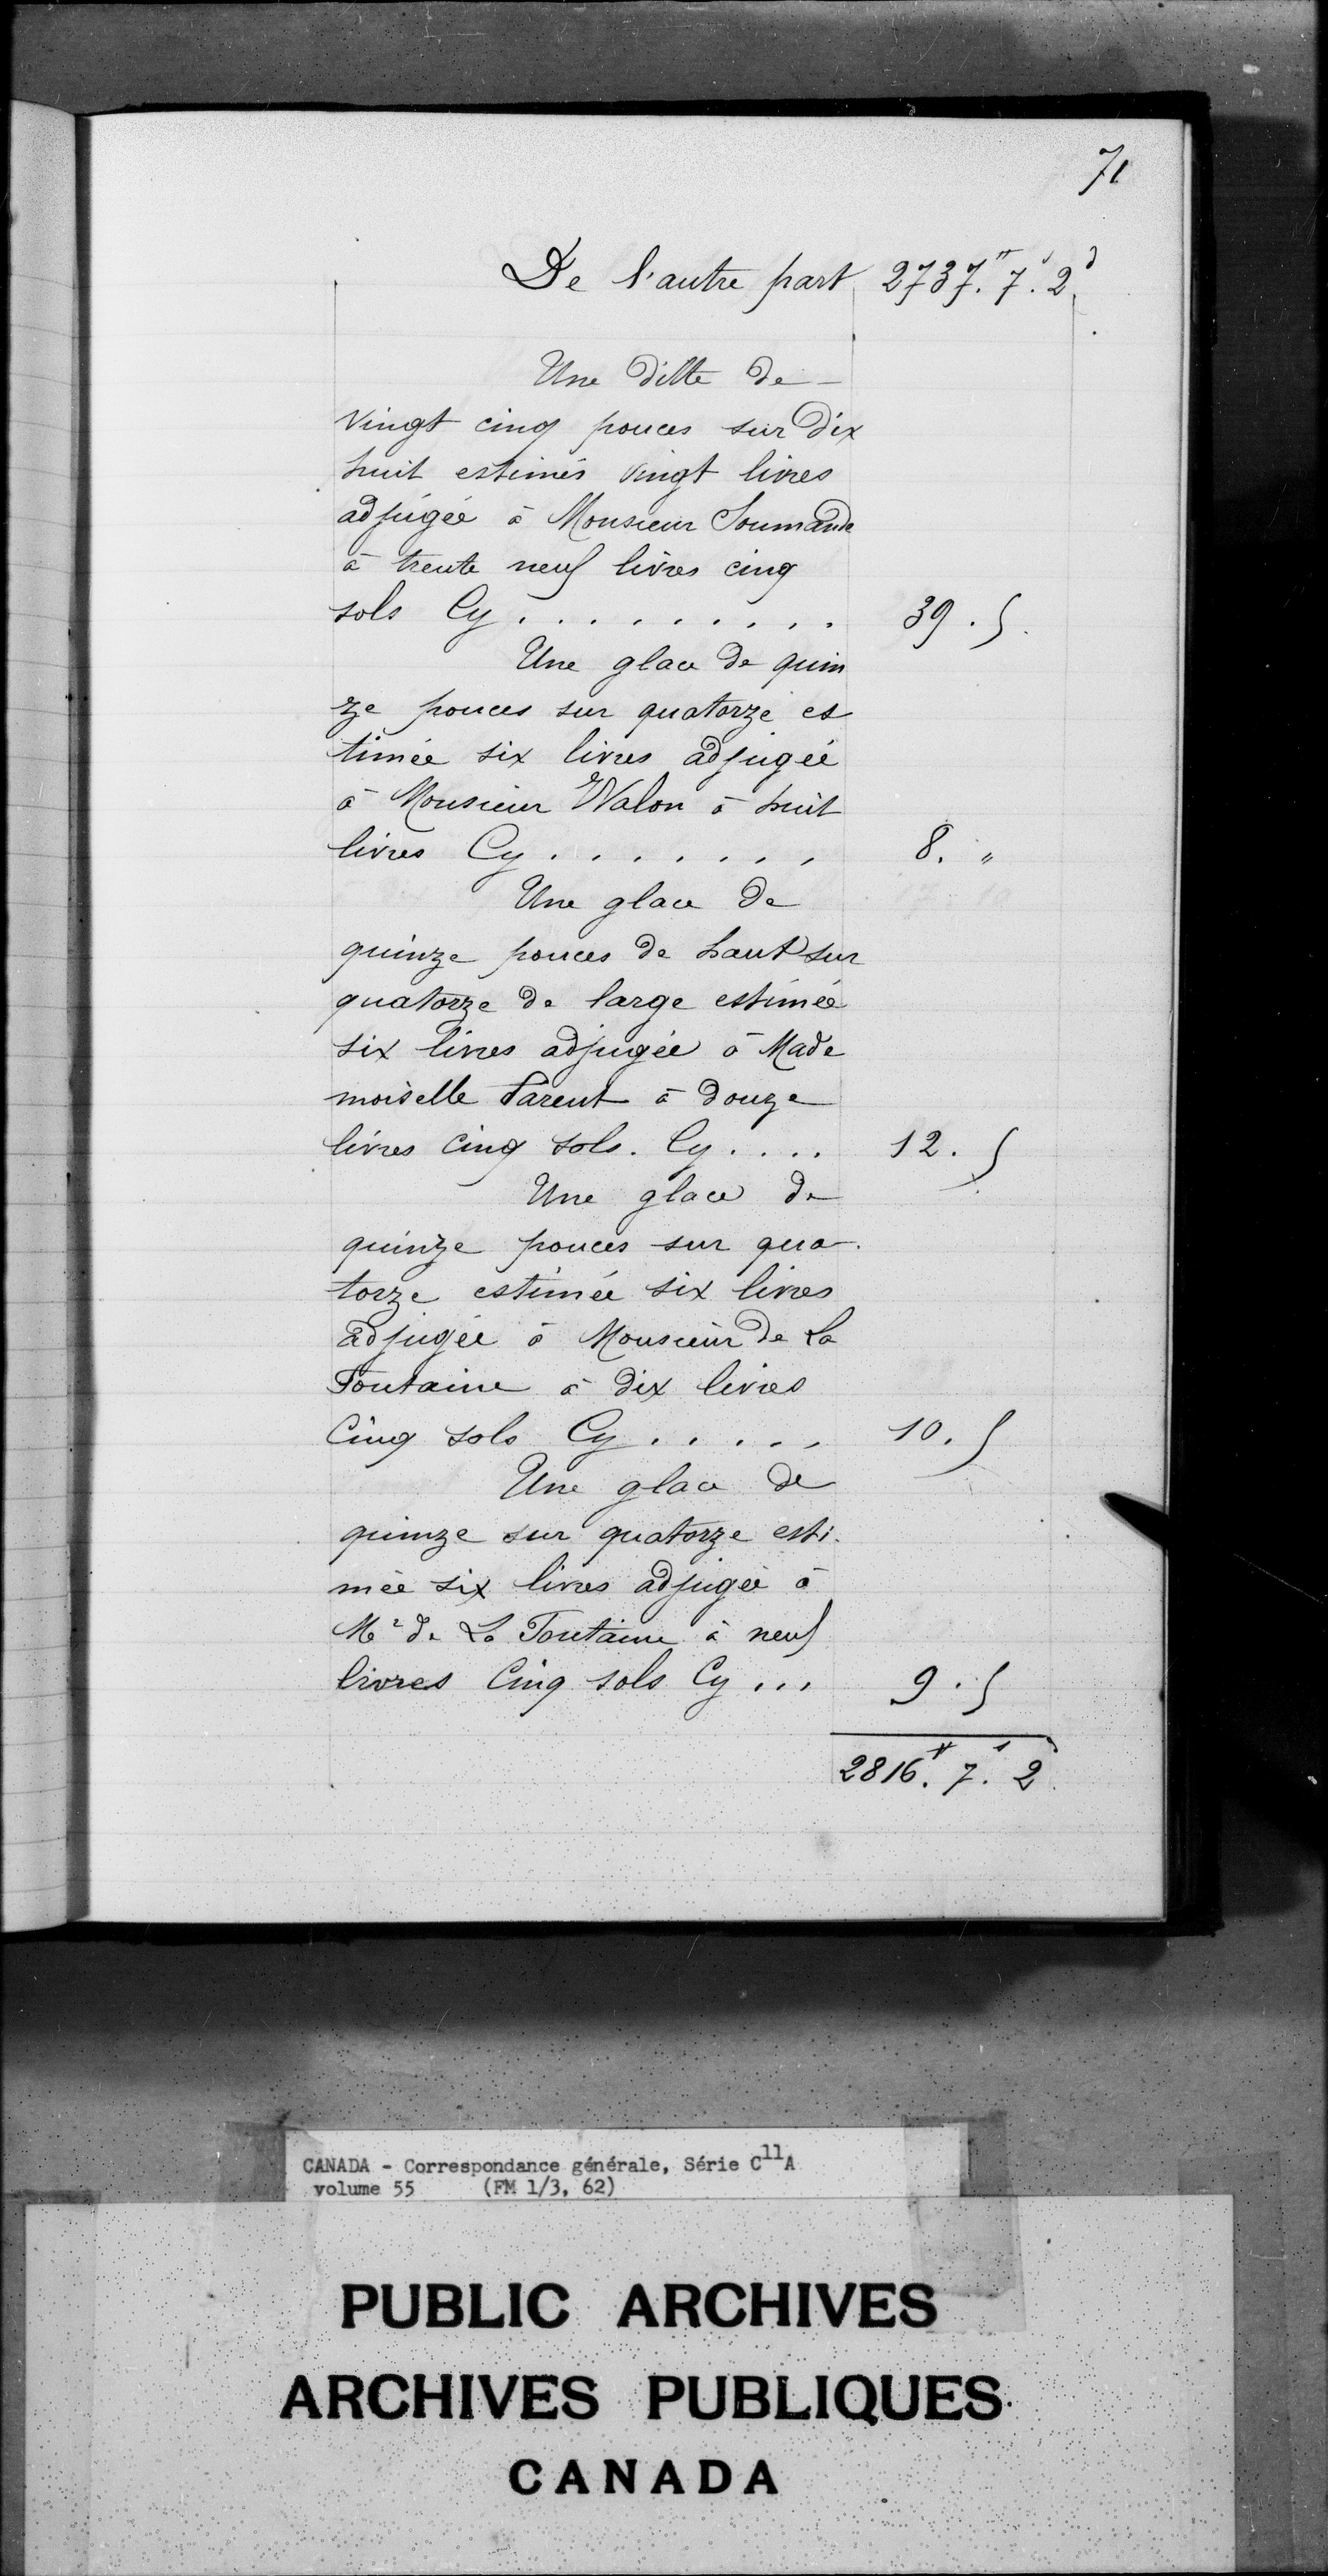 71
De l'autre part 2737.# 7.s 2.d
Une ditte de
vingt cinq pouces sur dix
huit estimés vingt livres
adjugée à Monsieur Soumande
à trente neuf livres cinq
sols Cy . . . . . . . . . . 39. 5.
Une glace de quin
ze pouces sur quatorze es
timée six livres adjugée
à Monsieur Walon à huit
livres Cy . . . . . . . . 8. "
Une glace de
quinze pouces de haut sur
quatorze de large estimée
six livres adjugée à Made
moiselle Parent à douze
livres cinq sols. Cy . . . . 12. 5
Une glace de
quinze pouces sur qua-
torze estimée six livres
adjugée à Monsieur de La
Fontaine à dix livres
Cinq sols Cy . . . . . 10. 5
Une glace de
quinze sur quatorze esti-
mée six livres adjugée à
Mr de La Fontaine à neuf
livres Cinq sols Cy . . . 9. 5
2816.# 7.s 2d
CANADA - Correspondance générale, Série C11A
volume 55 (FM 1/3, 62)
PUBLIC ARCHIVES
ARCHIVES PUBLIQUES
CANADA